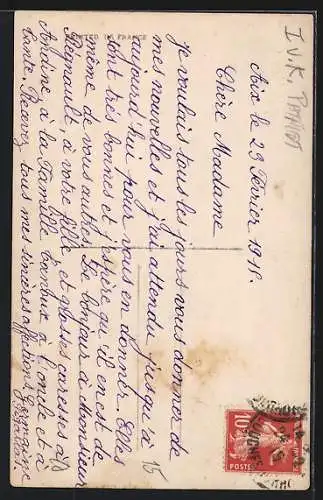 I.V.K. PATRIOT
PRINTED IN FRANCE
Aix le 23 Février 1915.
Chère Madame
Je voulais tous les jours vous donner de
mes nouvelles et j'ai attendu jusqu'à
aujourd'hui pour vous en donner. Elles
sont très bonnes et j'espère qu'il en est de
même de vous autres. Le bonjour à Monsieur
Régnault, à votre fille et grosses caresses à
Andrée à la Famille l'oncle et à
tante. Recevez tous mes sincères
15
10c
POSTE